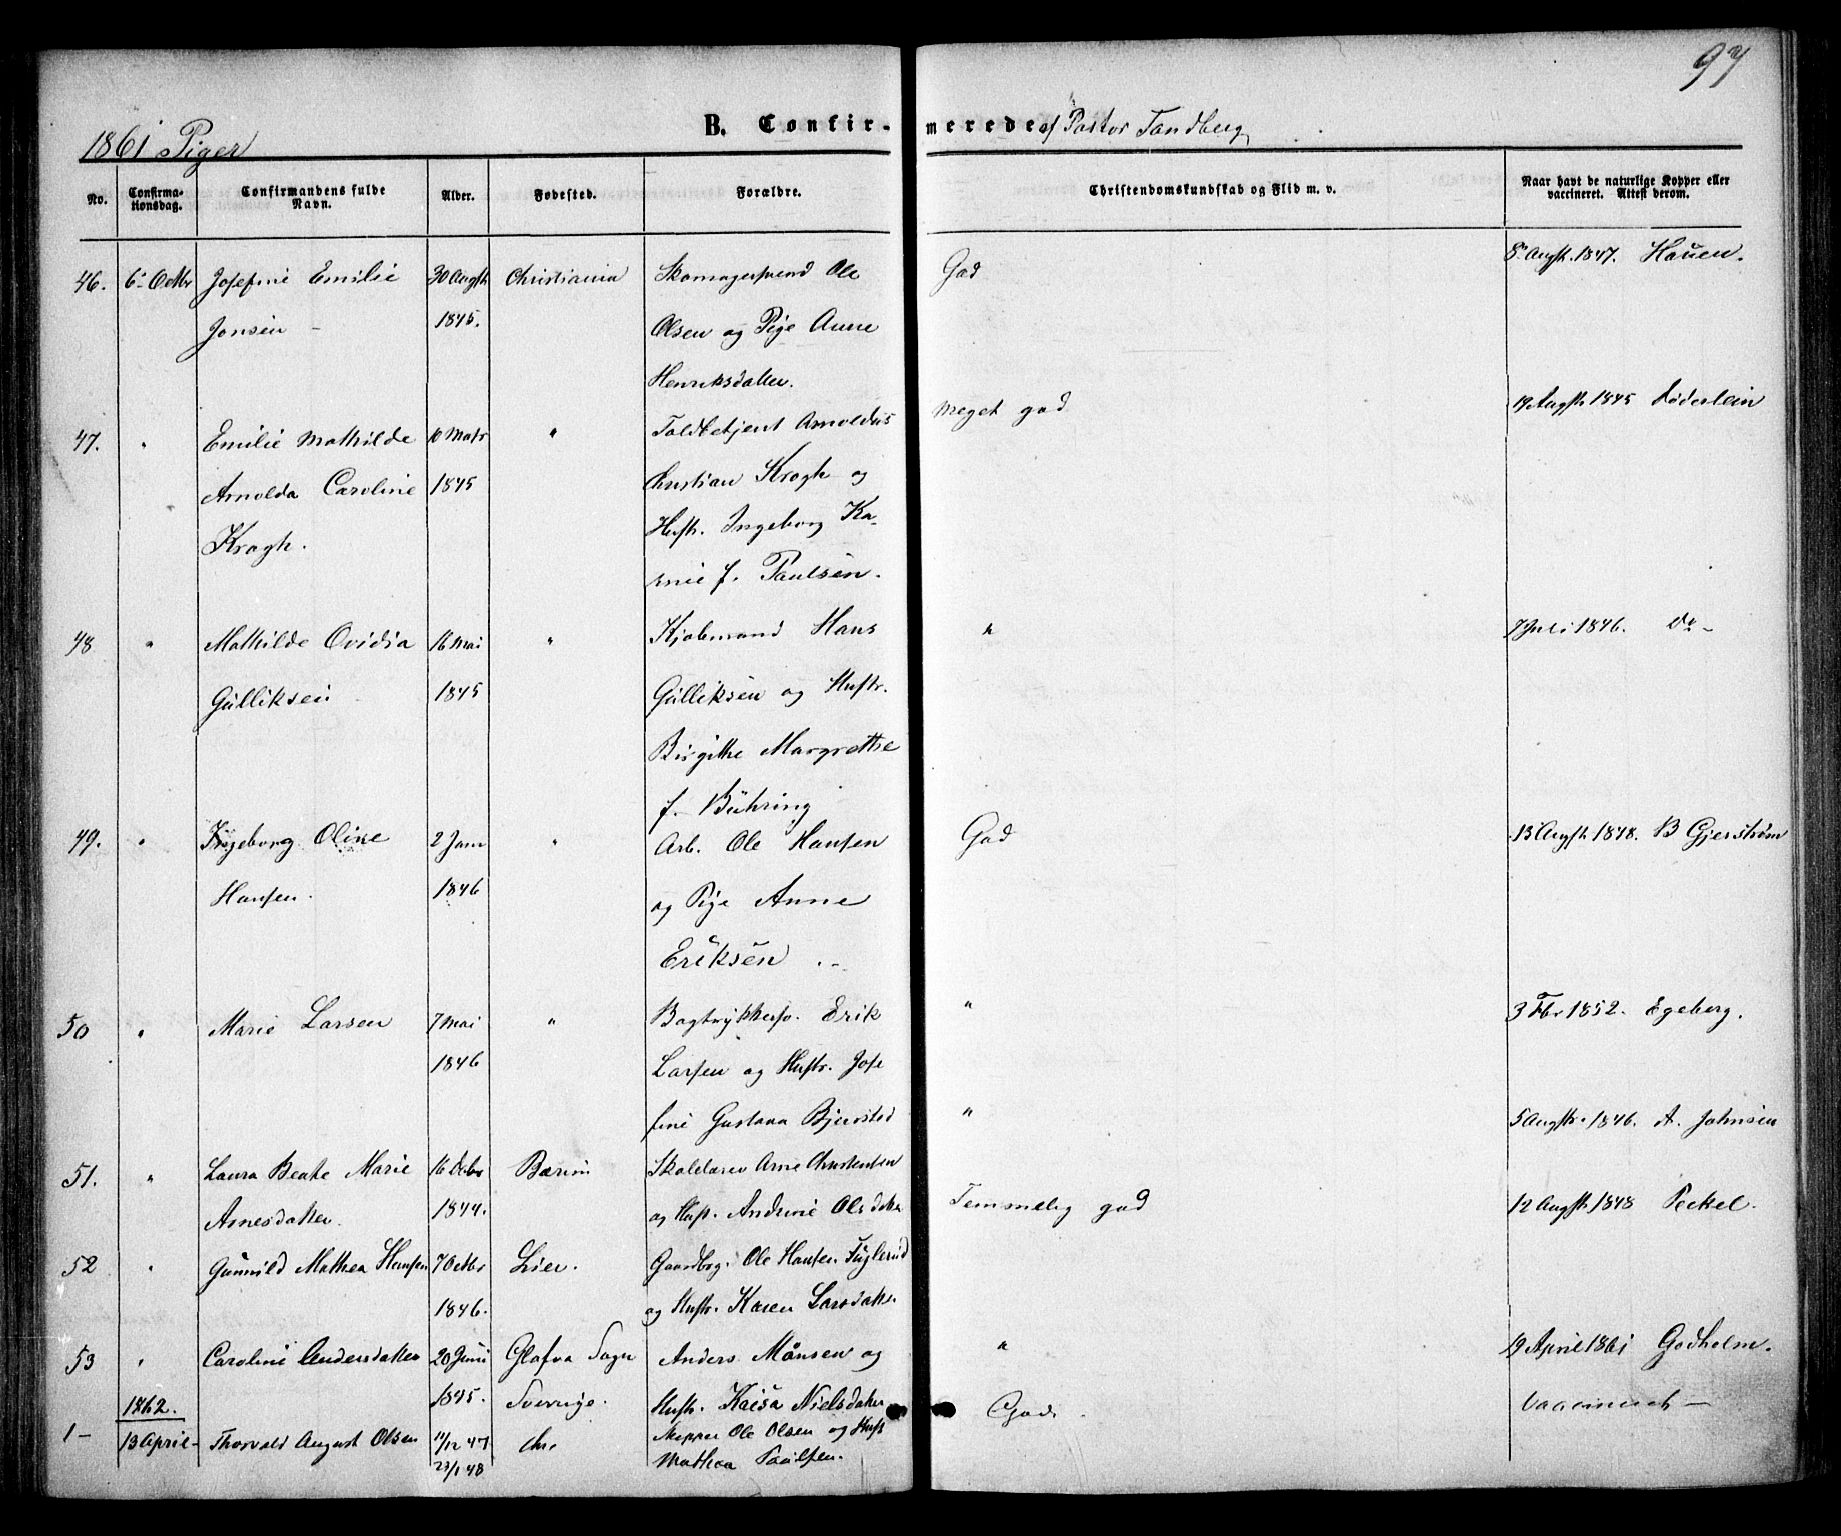 97
B. Confirmerede af Pastor Tandberg
1861 Piger
No. Confirmationsdag. Confirmandens fulde Navn. Alder. Fødested. Forældre. Christendomskundskab og Flid m. v. Naar havt de naturlige Kopper eller vaccineret. Attest derom.
46. 6 Octbr Josefine Emilie 30 Augst Christiania Skomagersvend Ole God 8 Augst. 1847. Hauen.
Jonsen 1845. Olsen og Pige Anne
Henriksdatter.
47. " Emilie Mathilde 10 Marts " Toldbetjent Arnoldus Meget god 19 Augst 1845 Døderlein
Arnolda Caroline 1845 Christian Krogh og
Krogh. Hustr. Ingeborg Ka-
rine f. Paulsen.
48 " Mathilde Ovidia 16 Mai " Kjøbmand Hans " 7 Juli 1846. do -
Gulliksen 1845 Gulliksen og Hustr.
Birgitte Margrethe
f. Bühring
49. " Ingeborg Oline 2 Janr " Arb. Ole Hansen God 13 Augst 1848. B Gjerstrøm
Hansen. 1846 og Pige Anne
Eriksen
50 " Marie Larsen 7 Mai " Bogtrykkersv. Erik " 3 Fbr 1852. Egeberg.
1846 Larsen og Hustr. Jose
fine Gustava Bjersted " 5 Augstr. 1846. A. Johnsen
51. " Laura Beate Marie 16 Debr Bærum Skoldlærer Arne Christensen
Arnesdatter. 1844. og Hust. Andrine Olsdatter Temmelig god 12 Augstr 1848 Peckel.
52 " Gunnild Mathea Hansen 7 Octbr Lier. Gaardbrg. Ole Hansen Fuglerud
1846. og Hustr. Karen Larsdatter
53 " Caroline Andersdatter 20 Juni Glafva Sogn Anders Månsen og " 19 April 1861 Godholm.
1845. Sverrige. Hustr. Kaisa Nielsdatter
1862. God. Vaccineret -
1- 13 April - Thorvald August Olsen 11/12 47 Chr. Skipper Ole Olsen og Hust
23/1 48 Mathea Paulsen.